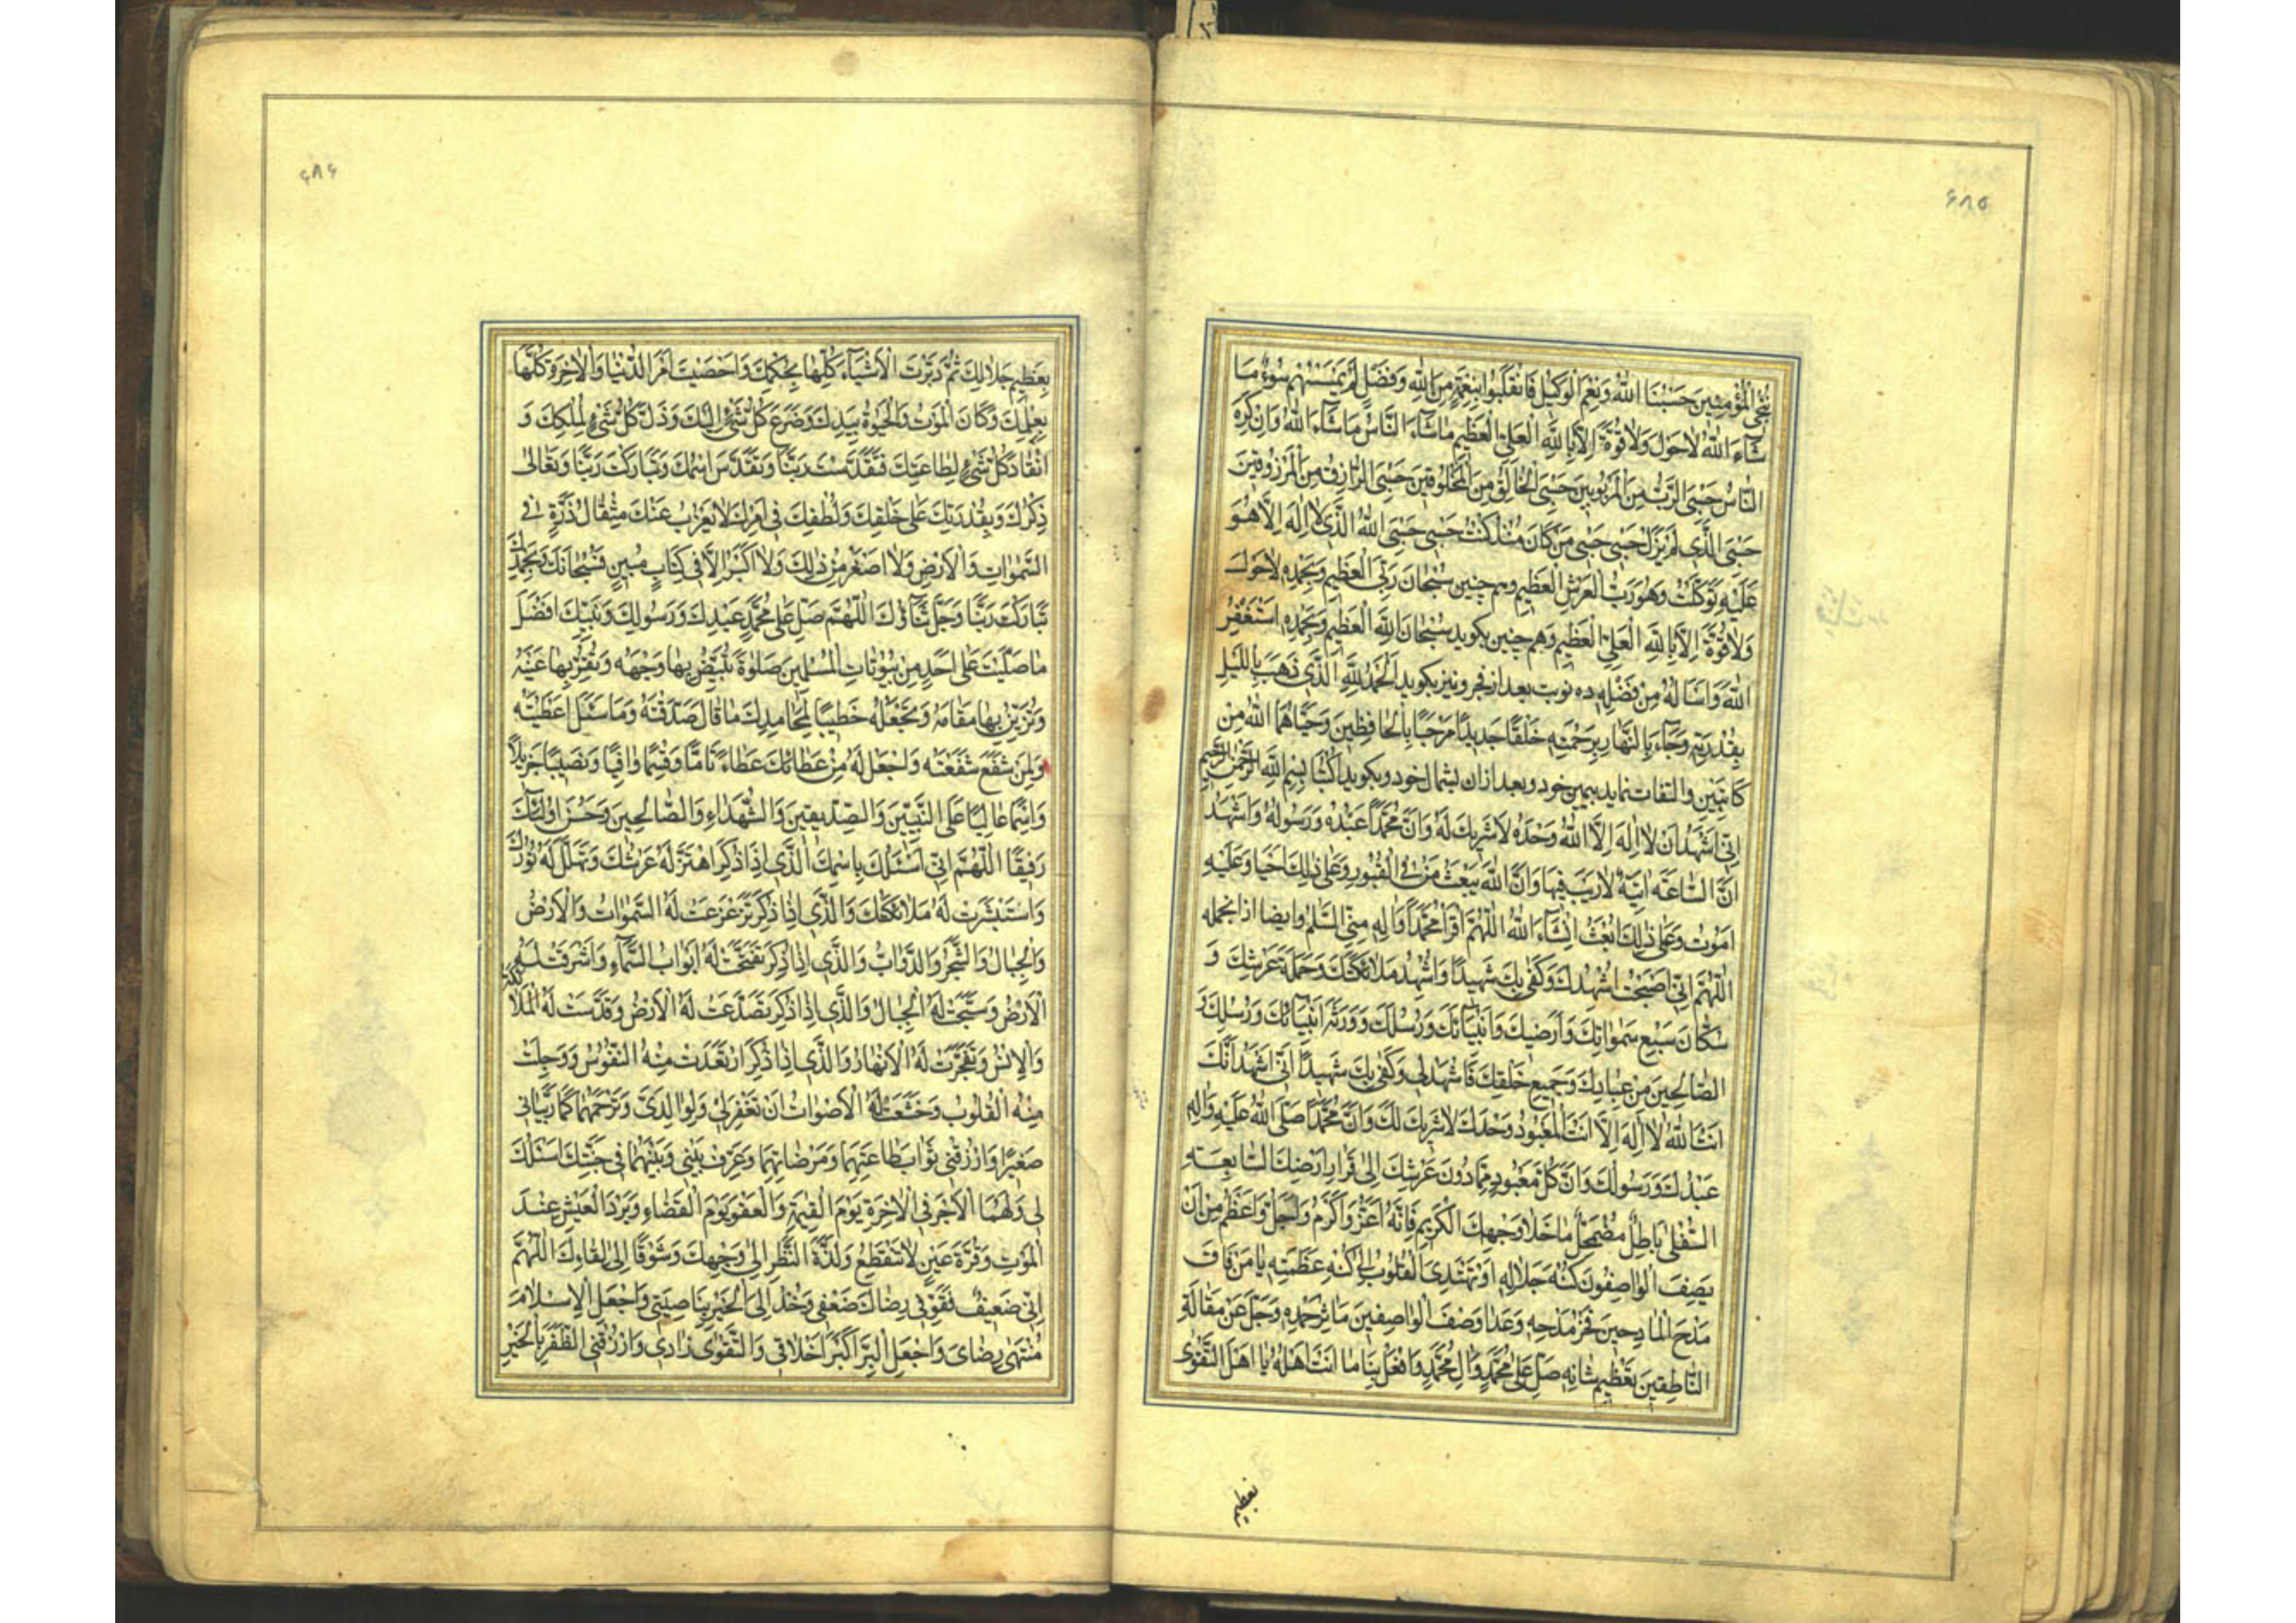 ۶۸۵
نُنْجِی الْمُؤْمِنِینَ حَسْبُنَا اللّٰهُ وَنِعْمَ الْوَکِیلُ فَانْقَلَبُوا بِنِعْمَةٍ مِنَ اللّٰهِ وَفَضْلٍ لَمْ یَمْسَسْهُمْ سُوءٌ مَا
شَاءَ اللّٰهُ لَاحَوْلَ وَلَاقُوَّةَ اِلَّا بِاللّٰهِ الْعَلِیِّ الْعَظِیمِ مَاشَاءَ النَّاسُ مَاشَاءَ اللّٰهُ وَاِنْ کَرِهَ
النَّاسُ حَسْبِیَ الرَّبُّ مِنَ الْمَرْبُوبِینَ حَسْبِیَ الْخَالِقُ مِنَ الْمَخْلُوقِینَ حَسْبِیَ الرَّازِقُ مِنَ الْمَرْزُوقِینَ
حَسْبِیَ الَّذِی لَمْ یَزَلْ حَسْبِی حَسْبِی مَنْ کَانَ مُنْذُ کُنْتُ حَسْبِی حَسْبِیَ اللّٰهُ الَّذِی لَا اِلٰهَ اِلَّا هُوَ
عَلَیْهِ تَوَکَّلْتُ وَهُوَ رَبُّ الْعَرْشِ الْعَظِیمِ وهم چنین سُبْحَانَ رَبِّیَ الْعَظِیمِ وَبِحَمْدِهِ لَاحَوْلَ
وَلَاقُوَّةَ اِلَّا بِاللّٰهِ الْعَلِیِّ الْعَظِیمِ وهم چنین بکوید سُبْحَانَ اللّٰهِ الْعَظِیمِ وَبِحَمْدِهِ اَسْتَغْفِرُ
اللّٰهَ وَاَسْاَلُهُ مِنْ فَضْلِهِ ده نوبت بعد از فجر ونیز بکوید اَلْحَمْدُ لِلّٰهِ الَّذِی ذَهَبَ بِاللَّیْلِ
بِقُدْرَتِهِ وَجَاءَ بِالنَّهَارِ بِرَحْمَتِهِ خَلْقًا جَدِیدًا مَرْحَبًا بِالْحَافِظِینَ وَحَیَّاکُمَا اللّٰهُ مِنْ
کَاتِبَیْنِ والتفات نماید بیمین خود وبعد ازان بشمال خود وبکوید اُکْتُبَا بِسْمِ اللّٰهِ الرَّحْمٰنِ الرَّحِیمِ
اِنِّی اَشْهَدُ اَنْ لَا اِلٰهَ اِلَّا اللّٰهُ وَحْدَهُ لَا شَرِیکَ لَهُ وَاَنَّ مُحَمَّدًا عَبْدُهُ وَرَسُولُهُ وَاَشْهَدُ
اَنَّ السَّاعَةَ اٰتِیَةٌ لَارَیْبَ فِیهَا وَاَنَّ اللّٰهَ یَبْعَثُ مَنْ فِی الْقُبُورِ وَعَلٰی ذٰلِکَ اَحْیَا وَعَلَیْهِ
اَمُوتُ وَعَلٰی ذٰلِکَ اُبْعَثُ اِنْشَاءَ اللّٰهُ اَللّٰهُمَّ اَقْرِءْ مُحَمَّدًا وَاٰلِهِ مِنِّی السَّلٰمَ وایضا ازانجمله
اَللّٰهُمَّ اِنِّی اَصْبَحْتُ اُشْهِدُکَ وَکَفٰی بِکَ شَهِیدًا وَاُشْهِدُ مَلَائِکَتَکَ وَحَمَلَةَ عَرْشِکَ وَ
سُکَّانَ سَبْعِ سَمٰوَاتِکَ وَاَرَضِیکَ وَاَنْبِیَائَکَ وَرُسُلَکَ وَوَرَثَةَ اَنْبِیَائِکَ وَرُسُلِکَ وَ
الصَّالِحِینَ مِنْ عِبَادِکَ وَجَمِیعَ خَلْقِکَ فَاشْهَدْ لِی وَکَفٰی بِکَ شَهِیدًا اَنِّی اَشْهَدُ اَنَّکَ
اَنْتَ اللّٰهُ لَا اِلٰهَ اِلَّا اَنْتَ الْمَعْبُودُ وَحْدَکَ لَا شَرِیکَ لَکَ وَاَنَّ مُحَمَّدًا صَلَّی اللّٰهُ عَلَیْهِ وَاٰلِهِ
عَبْدُکَ وَرَسُولُکَ وَاَنَّ کُلَّ مَعْبُودٍ مِمَّا دُونَ عَرْشِکَ اِلٰی قَرَارِ اَرْضِکَ السَّابِعَةِ
السُّفْلٰی بَاطِلٌ مُضْمَحِلٌّ مَاخَلَا وَجْهِکَ الْکَرِیمِ فَاِنَّهُ اَعَزُّ وَاَکْرَمُ وَاَجَلُّ وَاَعْظَمُ مِنْ اَنْ
یَصِفَ الْوَاصِفُونَ کُنْهَ جَلَالِهِ اَوْ تَهْتَدِیَ الْقُلُوبُ اِلٰی کُنْهِ عَظَمَتِهِ یَا مَنْ فَاقَ
مَدْحَ الْمَادِحِینَ فَخْرُ مَدْحِهِ وَعَدَا وَصْفَ الْوَاصِفِینَ مَاٰثِرُ حَمْدِهِ وَجَلَّ عَنْ مَقَالَةِ
النَّاطِقِینَ تَعْظِیمُ شَانِهِ صَلِّ عَلٰی مُحَمَّدٍ وَاٰلِ مُحَمَّدٍ وَافْعَلْ بِنَا مَا اَنْتَ اَهْلُهُ یَا اَهْلَ التَّقْوٰی
بعظیم
۶۸۶
بِعَظِیمِ جَلَالِکَ ثُمَّ دَبَّرْتَ الْاَشْیَاءَ کُلَّهَا بِحُکْمِکَ وَاَحْصَیْتَ اَمْرَ الدُّنْیَا وَالْاٰخِرَةِ کُلَّهَا
بِعِلْمِکَ وَکَانَ الْمَوْتُ وَالْحَیٰوةُ بِیَدِکَ وَضَرَعَ کُلُّ شَیْءٍ اِلَیْکَ وَذَلَّ کُلُّ شَیْءٍ لِمُلْکِکَ وَ
انْقَادَ کُلُّ شَیْءٍ لِطَاعَتِکَ فَتَقَدَّسْتَ رَبَّنَا وَتَقَدَّسَ اسْمُکَ وَتَبَارَکْتَ رَبَّنَا وَتَعَالٰی
ذِکْرُکَ وَبِقُدْرَتِکَ عَلٰی خَلْقِکَ وَلُطْفِکَ فِی اَمْرِکَ لَا یَعْزُبُ عَنْکَ مِثْقَالُ ذَرَّةٍ فِی
السَّمٰوَاتِ وَالْاَرْضِ وَلَا اَصْغَرُ مِنْ ذٰلِکَ وَلَا اَکْبَرُ اِلَّا فِی کِتَابٍ مُبِینٍ فَسُبْحَانَکَ وَبِحَمْدِکَ
تَبَارَکْتَ رَبَّنَا وَجَلَّ ثَنَاؤُکَ اَللّٰهُمَّ صَلِّ عَلٰی مُحَمَّدٍ عَبْدِکَ وَرَسُولِکَ وَنَبِیِّکَ اَفْضَلَ
مَا صَلَّیْتَ عَلٰی اَحَدٍ مِنْ بُیُوتَاتِ الْمُسْلِمِینَ صَلٰوةً تُبَیِّضُ بِهَا وَجْهَهُ وَتُقِرُّ بِهَا عَیْنَهُ
وَتُزَیِّنُ بِهَا مَقَامَهُ وَتَجْعَلُهُ خَطِیبًا لِمَحَامِدِکَ مَا قَالَ صَدَّقْتَهُ وَمَا سَئَلَ اَعْطَیْتَهُ
وَلِمَنْ شَفَعَ شَفَّعْتَهُ وَاجْعَلْ لَهُ مِنْ عَطَائِکَ عَطَاءً تَامًّا وَقِسْمًا وَافِیًا وَنَصِیبًا جَزِیلًا
وَاسْمًا عَالِیًا عَلَی النَّبِیِّینَ وَالصِّدِّیقِینَ وَالشُّهَدَاءِ وَالصَّالِحِینَ وَحَسُنَ اُولٰئِکَ
رَفِیقًا اَللّٰهُمَّ اِنِّی اَسْئَلُکَ بِاسْمِکَ الَّذِی اِذَا ذُکِرَ اهْتَزَّ لَهُ عَرْشُکَ وَتَهَلَّلَ لَهُ نُورُکَ
وَاسْتَبْشَرَتْ لَهُ مَلَائِکَتُکَ وَالَّذِی اِذَا ذُکِرَ تَزَعْزَعَتْ لَهُ السَّمٰوَاتُ وَالْاَرْضُ
وَالْجِبَالُ وَالشَّجَرُ وَالدَّوَابُّ وَالَّذِی اِذَا ذُکِرَ تَفَتَّحَتْ لَهُ اَبْوَابُ السَّمَاءِ وَاَشْرَقَتْ لَهُ
الْاَرْضُ وَسَبَّحَتْ لَهُ الْجِبَالُ وَالَّذِی اِذَا ذُکِرَ تَصَدَّعَتْ لَهُ الْاَرْضُ وَقَدَّسَتْ لَهُ الْمَلَائِکَةُ
وَالْاِنْسُ وَتَفَجَّرَتْ لَهُ الْاَنْهَارُ وَالَّذِی اِذَا ذُکِرَ ارْتَعَدَتْ مِنْهُ النُّفُوسُ وَوَجِلَتْ
مِنْهُ الْقُلُوبُ وَخَشَعَتْ لَهُ الْاَصْوَاتُ اَنْ تَغْفِرَ لِی وَلِوَالِدَیَّ وَتَرْحَمَهُمَا کَمَا رَبَّیَانِی
صَغِیرًا وَارْزُقْنِی ثَوَابَ طَاعَتِهِمَا وَمَرْضَاتِهِمَا وَعَرِّفْ بَیْنِی وَبَیْنَهُمَا فِی جَنَّتِکَ اَسْئَلُکَ
لِی وَلَهُمَا الْاَجْرَ فِی الْاٰخِرَةِ یَوْمَ الْقِیٰمَةِ وَالْعَفْوَ یَوْمَ الْقَضَاءِ وَبَرْدَ الْعَیْشِ عِنْدَ
الْمَوْتِ وَقُرَّةَ عَیْنٍ لَا تَنْقَطِعُ وَلَذَّةَ النَّظَرِ اِلٰی وَجْهِکَ وَشَوْقًا اِلٰی لِقَاءِکَ اَللّٰهُمَّ
اِنِّی ضَعِیفٌ فَقَوِّ فِی رِضَاکَ ضَعْفِی وَخُذْ اِلَی الْخَیْرِ بِنَاصِیَتِی وَاجْعَلِ الْاِسْلَامَ
مُنْتَهٰی رِضَایَ وَاجْعَلِ الْبِرَّ اَکْبَرَ اَخْلَاقِی وَالتَّقْوٰی زَادِی وَارْزُقْنِی الظَّفَرَ بِالْخَیْرِ